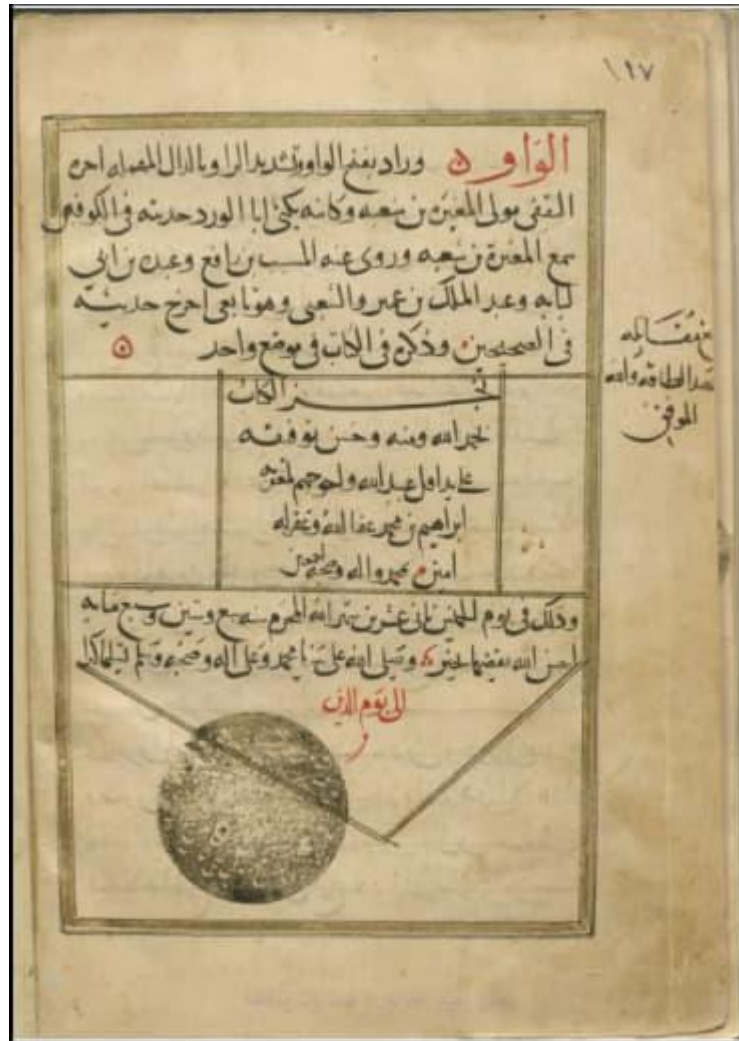 ١٩٧
الواو ن وراد بفتح الواو وتشديد الراو بالدال المهمله اخره
الثقفي مولى المغيرة بن شعبه وكاتبه يكنى ابا الورد حديثه في الكوفيين
سمع المغيرة بن شعبه وروى عنه المسيب بن رافع وعبده بن ابي
لبابه وعبد الملك بن عمير والشعبي وهو تابعي اخرج حديثه
في الصحيحين وذكره في الكتاب في موضع واحد ه
نجز الكتاب
بحمد الله ومنه وحسن توفيقه
على يد اقل عبيد الله واحوجهم لمغفرته
ابراهيم بن محمد عفا الله وغفر له
امين بمحمد واله وصحبه اجمعين
وذلك في يوم الخميس ثاني عشرين شهر الله المحرم سنه سبع وستين وسبع مايه
احسن الله تقضيها بخير وصلى الله على سيدنا محمد وعلى اله وصحبه وسلم تسليما كثيرا
الى يوم الدين
بلغ مقابله
بحسب الطاقه والله
الموفق